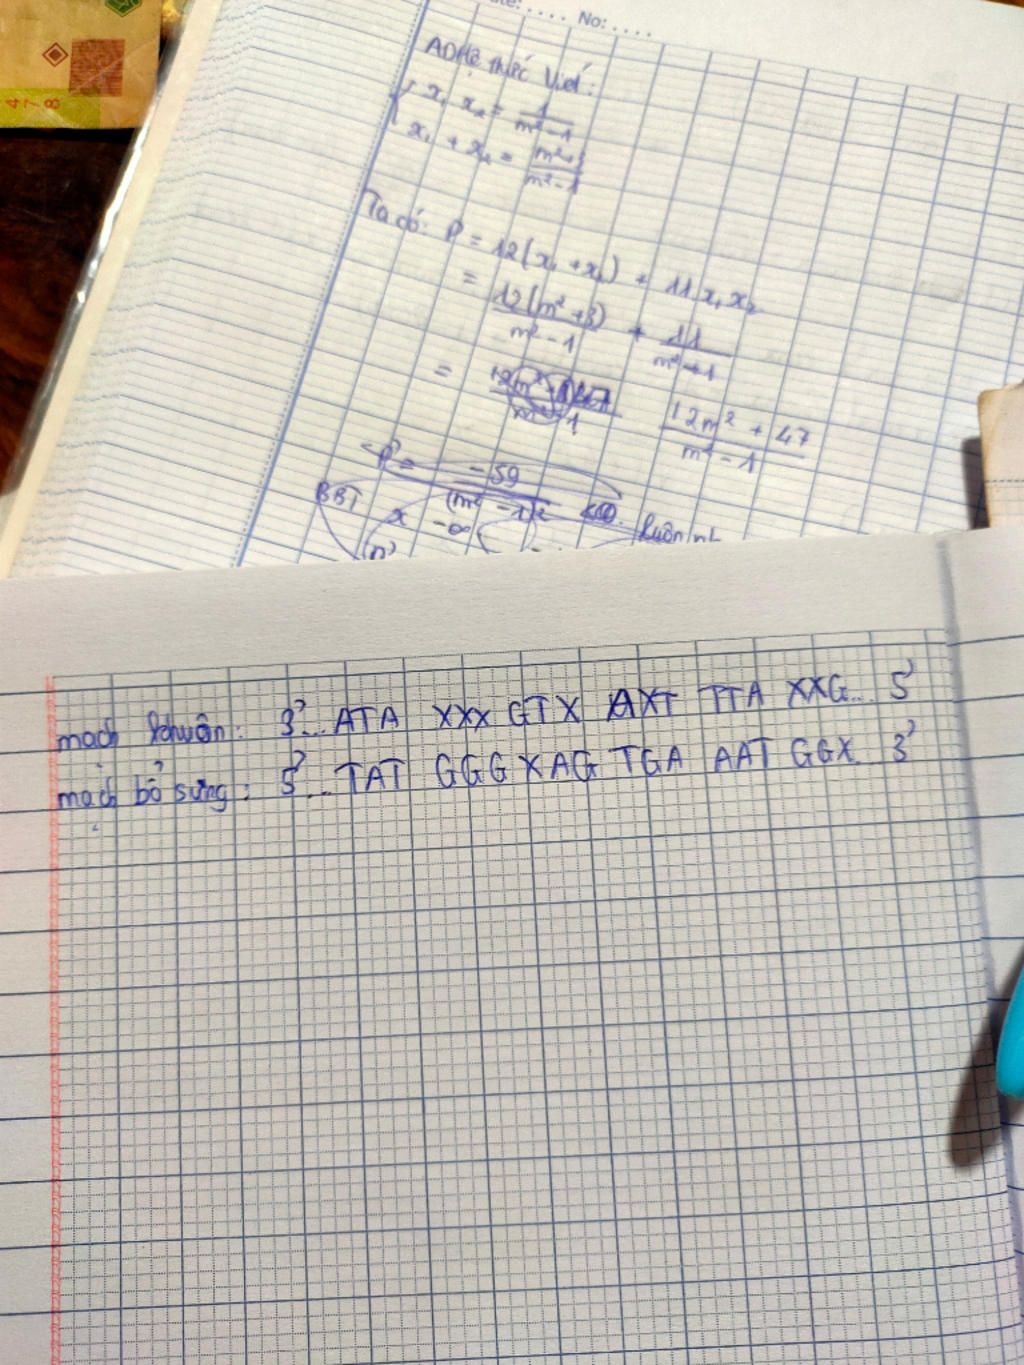 No: ....
AD Hệ thức Viét:
x₁ x₂ = 1/(m² - 1)
x₁ + x₂ = (m² + 3)/(m² - 1)
Ta có: P = 12(x₁ + x₂) + 11 x₁ x₂
= 12(m² + 3)/(m² - 1) + 11/(m² - 1)
= 12m² + 47/(m² - 1)
P = -59/(m² - 1)²
BBT x -∞
mạch khuôn: 3' ... ATA XXX GTX AXT TTA XXG... 5'
mạch bổ sung: 5' ... TAT GGG XAG TGA AAT GGX. 3'